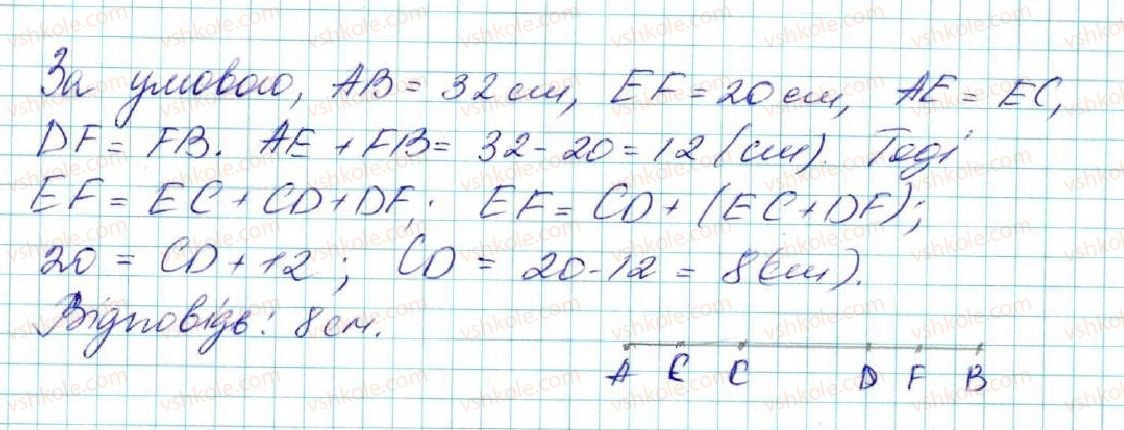 За умовою, AB = 32 см, EF = 20 см, AE = EC,
DF = FB. AE + FB = 32 - 20 = 12 (см). Тоді
EF = EC + CD + DF; EF = CD + (EC + DF);
20 = CD + 12; CD = 20 - 12 = 8 (см).
Відповідь: 8 см.
A E C D F B